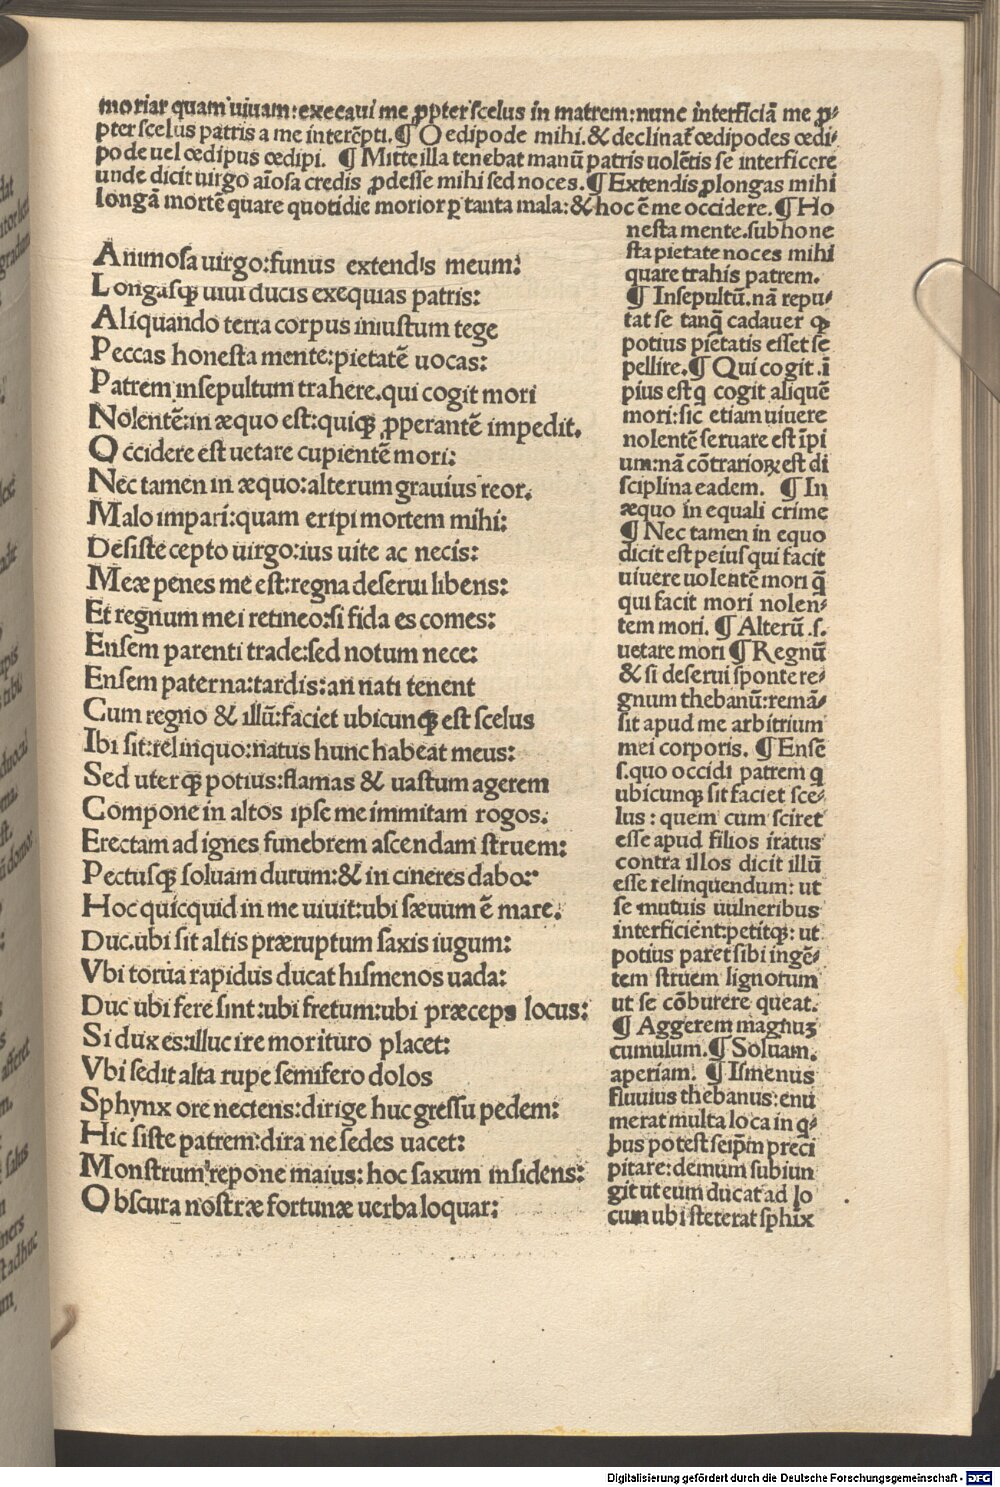 moriar quam uiuam:execaui me ꝓpter scelus in matrem:nunc interficiā me ꝓ-
pter scelus patris a me interēpti.¶ Oedipode mihi.& declinat̃ œdipodes œdi-
pode uel œdipus œdipi. ¶ Mitte illa tenebat manū patris uolētis se interficere
unde dicit uirgo aīosa credis ꝓdesse mihi sed noces.¶ Extendis ꝓlongas mihi
longā mortē quare quotidie morior p̱ tanta mala:& hoc ē me occidere.¶ Ho
nesta mente.sub hone
sta pietate noces mihi
quare trahis patrem.
¶ Insepultū.nā repu-
tat se tanq̄ cadauer ꝙ
potius pietatis esset se
pellire.¶ Qui cogit.ī
pius est q̄ cogit aliquē
mori:sic etiam uiuere
nolentē seruare est īpi
um:nā cōtrarioꝝ est di
sciplina eadem. ¶ In
æquo in equali crime
¶ Nec tamen in equo
dicit est peius qui facit
uiuere uolentē mori q̄
qui facit mori nolen-
tem mori. ¶ Alterū .s.
uetare mori ¶ Regnū
& si deserui sponte re-
gnum thebanū:remā-
sit apud me arbitrium
mei corporis. ¶ Ensē
s.quo occidi patrem q
ubicunqꝫ sit faciet sce-
lus : quem cum sciret
esse apud filios iratus
contra illos dicit illū
esse relinquendum: ut
se mutuis uulneribus
interficient:petitqꝫ: ut
potius paret sibi ingē-
tem struem lignorum
ut se cōburere queat.
¶ Aggerem magnuꝫ
cumulum.¶ Soluam.
aperiam. ¶ Ismenus
fluuius thebanus:enu
merat multa loca in q-
bus potest seip̄m preci
pitare:demum subiun
git ut eum ducat ad lo
cum ubi steterat sphix
Animosa uirgo:funus extendis meum:
Longasqꝫ uiui ducis exequias patris:
Aliquando terra corpus iniustum tege
Peccas honesta mente:pietatē uocas:
Patrem insepultum trahere.qui cogit mori
Nolentē:in æquo est:quiqꝫ ꝓperantē impedit.
Occidere est uetare cupientē mori:
Nec tamen in æquo:alterum grauius reor.
Malo impari:quam eripi mortem mihi:
Desiste cepto uirgo:ius uite ac necis:
Meæ penes me est:regna deserui libens:
Et regnum mei retineo:si fida es comes:
Ensem parenti trade:sed notum nece:
Ensem paterna:tardis:an nati tenent
Cum regno & illū:faciet ubicunqꝫ est scelus
Ibi sit:relinquo:natus hunc habeat meus:
Sed uterqꝫ potius:flamas & uastum agerem
Compone in altos ipse me immitam rogos.
Erectam ad ignes funebrem ascendam struem:
Pectusqꝫ soluam durum:& in cineres dabo:
Hoc quicquid in me uiuit:ubi sæuum ē mare.
Duc.ubi sit altis præruptum saxis iugum:
Vbi torua rapidus ducat hismenos uada:
Duc ubi fere sint:ubi fretum:ubi præceps locus:
Si dux es:illuc ire morituro placet:
Vbi sedit alta rupe semifero dolos
Sphynx ore nectens:dirige huc gressu pedem:
Hic siste patrem:dira ne sedes uacet:
Monstrum repone maius: hoc saxum insidens:
Obscura nostræ fortunæ uerba loquar:
Digitalisierung gefördert durch die Deutsche Forschungsgemeinschaft - DFG